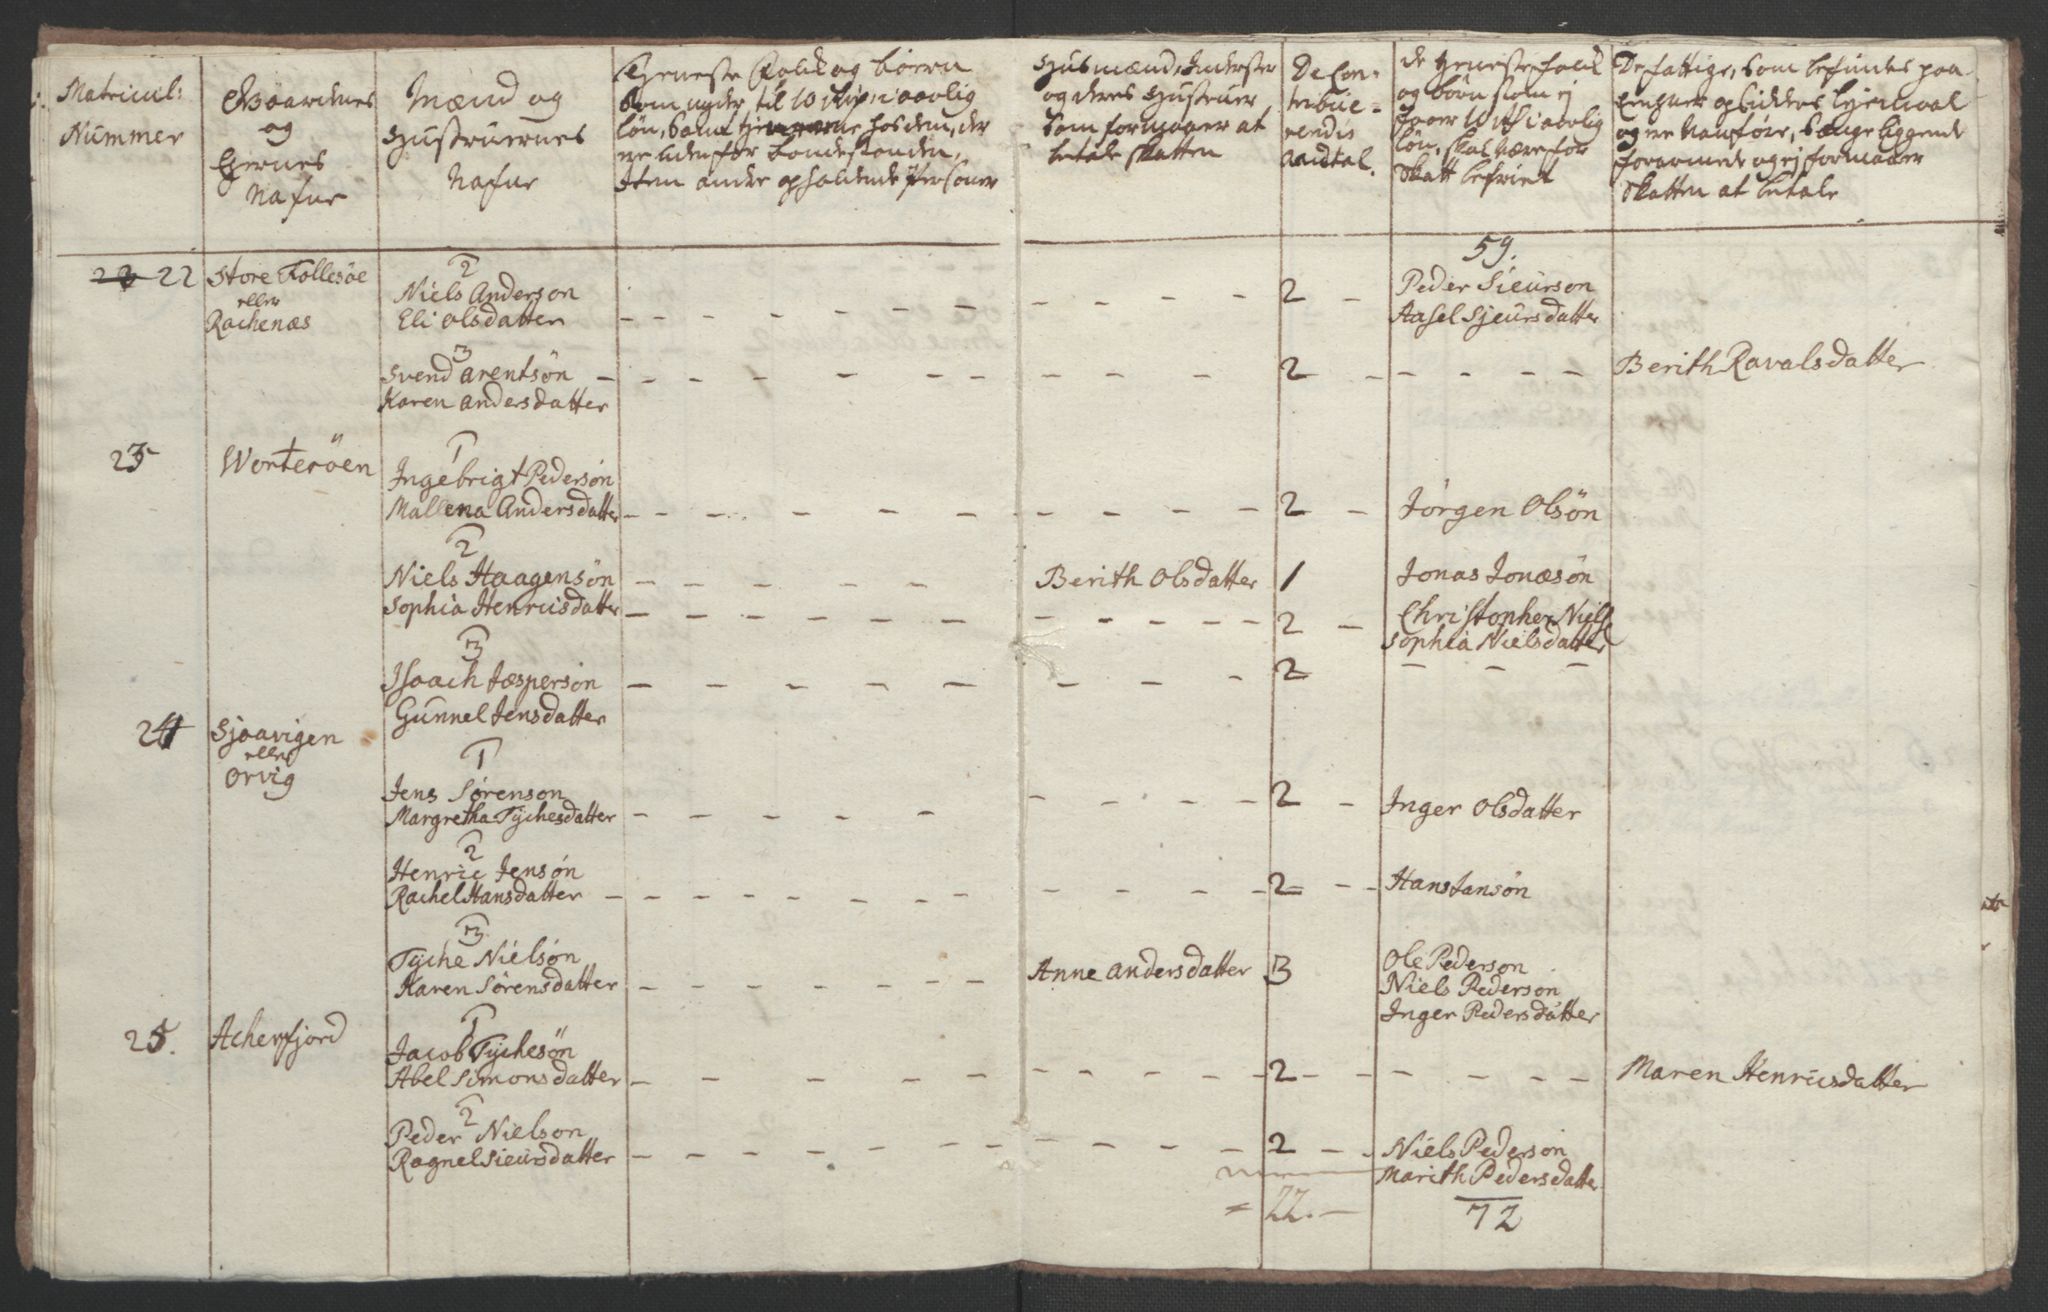 Matricul:
Nummer
Gaardenes
og
Ejernes
Nafne
Mænd og
Hustruernes
Nafne
Tieneste Folk og börn
Som nyder til 10 aarlig
lön, Samt hos dem, der
ere udenför bondestanden,
Item andre opholdende Personer
Husmænd, Inderster
og deres Hustruer
Som formaaer at
betale skatten
De Con-
tribue-
rendis
Andtal.
de tienestefolk
og börn som ej
faaer 10 aarlig
lön, skal være for
Skatt befriet
De fattige, som befindes paa
og ere Vanföre, Sængeliggende
forarmede og ej formaaer
Skatten at betale
59.
22 Store Follesöe
eller
Rachenæs
2
Niels Anderson
Eli Olsdatter
2
Peder Sieurson
Aasel Sjeursdatter
3
Svend Arentsön
Karen Andersdatter
2
Berith Ravalsdatter
23
Worteröen
1
Ingebrigt Pedersön
Mallena Andersdatter
2
Jörgen Olsön
2
Niels Haagensön
Sophia Henricsdatter
Berith Olsdatter
1
2
Jonas Jonæsön
Christopher Niels
Sophia Nielsdatter
3
Isaach Jæsperson
Gunnel Jensdatter
2
24
Sjoavigen
eller
Orvig
1
Jens Sörenson
Margretha Tÿchesdatter
2
Inger Olsdatter
2
Henric Jensön
Rachel Hansdatter
2
Hans Jansön
3
Tÿche Nielsön
Karen Sörensdatter
Anne Andersdatter
3
Ole Pederson
Niels Pederson
Inger Pedersdatter
25.
Acherfjord
1
Jacob Tÿchesön
Abel Simonsdatter
2
Maren Henricsdatter
2
Peder Nielson
Ragnel Sieursdatter
2
Niels Pederson
Marith Pedersdatter
22.
72